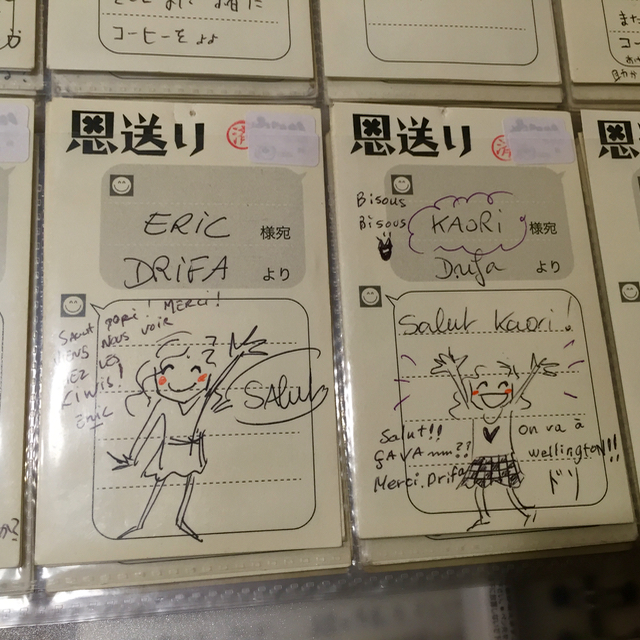 コーヒーをよよ
コー
恩送り
済
ERIC 様宛
DRIFA より
Salut DORI! MERCI!
VIENS NOUS VOIR
CHEZ LES
KIWIS!
Eric
SALUT
恩送り
済
Bisous
Bisous
KAORI 様宛
Drifa より
Salut Kaori!
Salut!! on va à
ÇAVA
wellington!!
Merci. Drifa
ドリ
恩